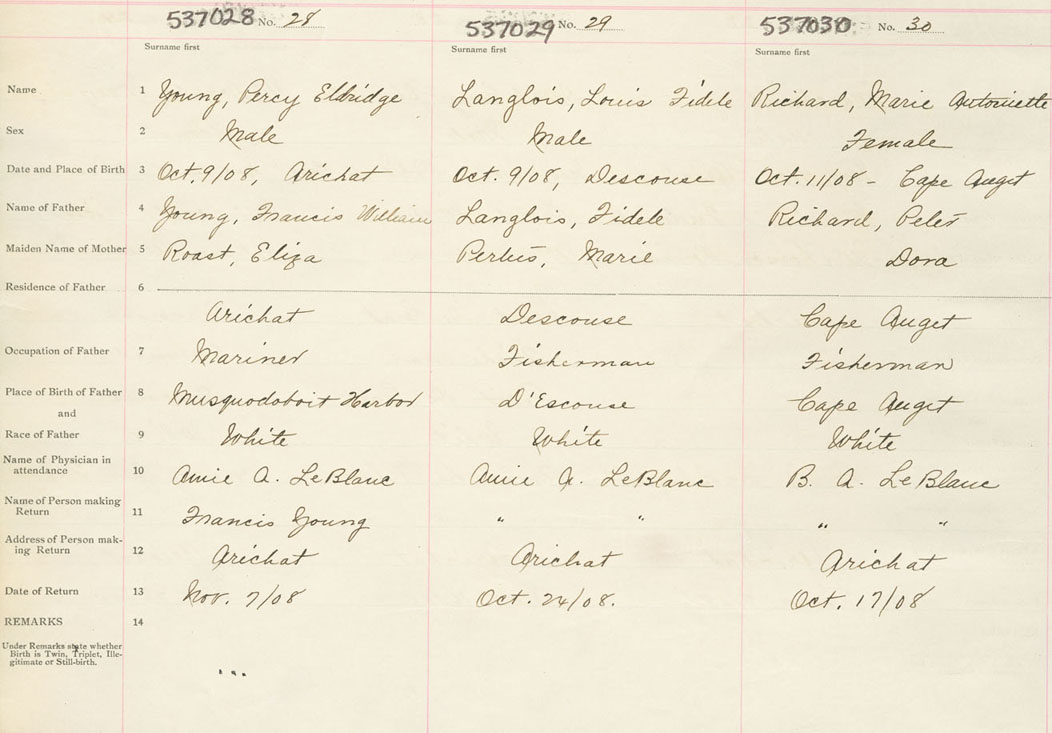 537028 No. 28 537029 No. 29 537030 No. 30
Surname first Surname first Surname first
Name 1 Young, Percy Eldridge Langlois, Louis Fidele Richard, Marie Antoinette
Sex 2 Male Male Female
Date and Place of Birth 3 Oct. 9/08, Arichat Oct. 9/08, Descouse Oct. 11/08 - Cape Auget
Name of Father 4 Young, Francis William Langlois, Fidele Richard, Peter
Maiden Name of Mother 5 Roast, Eliza Marie Dora
Residence of Father 6
Arichat Descouse Cape Auget
Occupation of Father 7 Mariner Fisherman Fisherman
Place of Birth of Father 8 Musquodoboit Harbor D'Escouse Cape Auget
and
Race of Father 9 White White White
Name of Physician in
attendance 10 Amie A. LeBlanc Amie A. LeBlanc B. A. LeBlanc
Name of Person making
Return 11 Francis Young " " " "
Address of Person mak-
ing Return 12 Arichat Arichat Arichat
Date of Return 13 Nov. 7/08 Oct. 24/08. Oct. 17/08
REMARKS 14
Under Remarks state whether
Birth is Twin, Triplet, Ille-
gitimate or Still-birth.